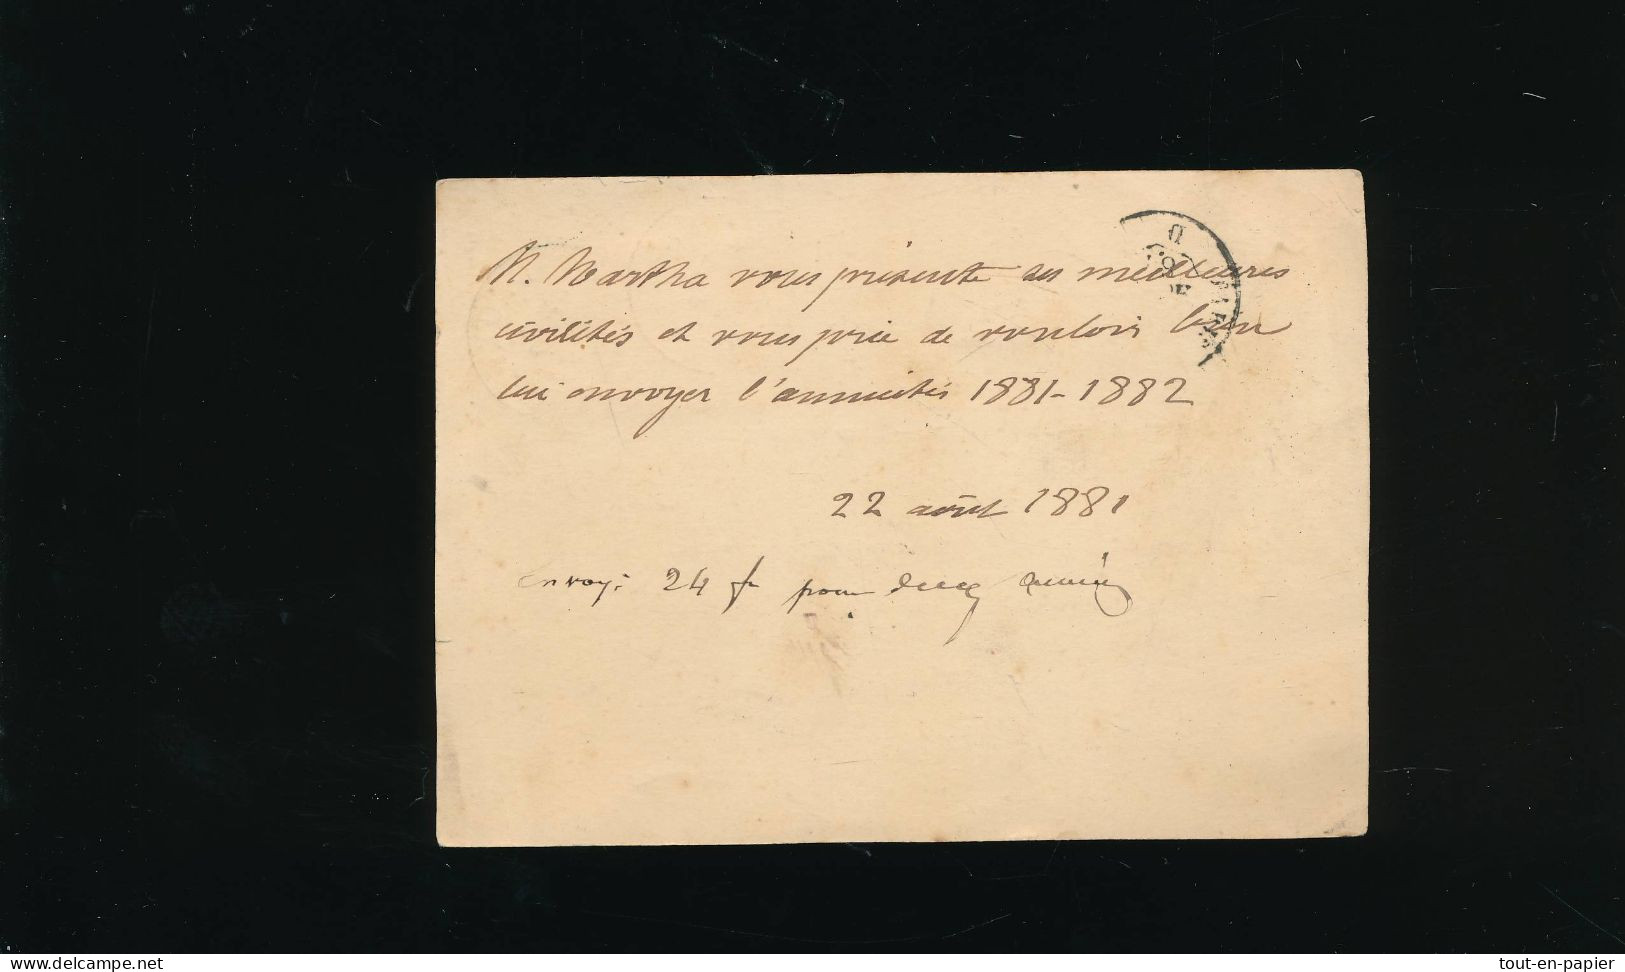 M. Martha vous présente ses meilleures
civilités et vous prie de vouloir bien
lui envoyer l'annuités 1881-1882
22 août 1881
envoyé 24 f pour deux années
www.delcampe.net
tout-en-papier